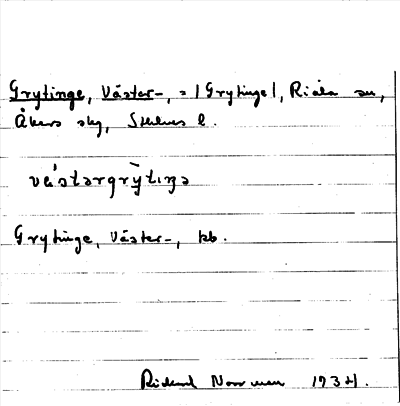 Grytinge, Väster-, = | Grytinge |, Riala sn,
Åkers skg, Sthlms l.
vä́stərgrỳtıŋə
Grytinge, Väster-, kb.
Rickard Norrman 1934.